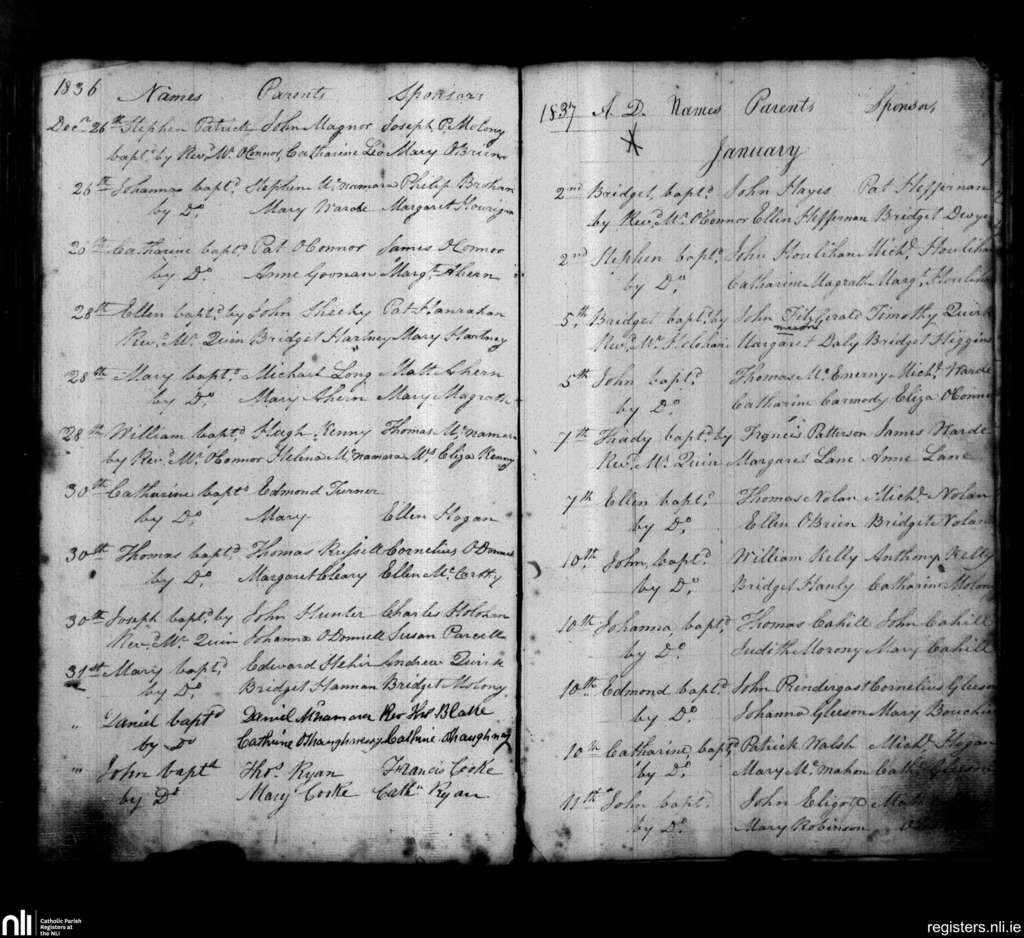 1836 Names Parents Sponsors
Decr. 26th Stephen Patrick John Magnor Joseph P. Molony
bapt. by Revd. Mr. O'Connor, Catharine Leo Mary O'Brien
26th Johanna baptd. Stephen McNamara Philip Brohan
by Do. Mary Warde Margaret Hourigan
26th Catharine baptd. Pat OConnor James OConnor
by Do. Anne Goonan Margt. Ahern
28th Ellen baptd. by John Sheehy Pat Hanrahan
Revd. Mr. Quin Bridget Hartney Mary Hartney
28th Mary baptd. Michael Long Matt Ahern
by Do. Mary Ahern Mary Magrath
28th William baptd. Hugh Kenny Thomas McNamara
by Revd. Mr. O'Connor Helena McNamara Mrs. Eliza Kenny
30th Catharine baptd. Edmond Turner
by Do. Mary Ellen Hogan
30th Thomas baptd. Thomas Russell Cornelius O'Donnell
by Do. Margaret Cleary Ellen McCarthy
30th Joseph baptd. by John Hunter Charles Holohan
Revd. Mr. Quin Johanna O'Donnell Susan Purcell
31st Mary baptd. Edward Hehir Andrew Quirk
by Do. Bridget Hannan Bridget Molony
" Daniel baptd Daniel McNamara Rev Thos Blake
by Do Cathrine O'Shaughnessy Cathrine OShaughnessy
" John baptd Thos. Ryan Francis Cooke
by Do Mary Cooke Cathn Ryan
1837 A. D. Names Parents Sponsors
January
2nd Bridget, baptd. John Hayes Pat Heffernan
by Revd. Mr. O'Connor Ellen Heffernan Bridget Dwyer
2nd Stephen baptd. John Houlihan Michl. Houlihan
by Do. Catharine Magrath Margt. Houlihan
5th, Bridget baptd. by John FitzGerald Timothy Quirk
Revd. Mr. Margaret Daly Bridget Higgins
5th John baptd. Thomas McEnerny Michl. Warde
by Do. Catharine Carmody Eliza O'Connor
7th Thady baptd. by Francis Patterson James Warde
Revd. Mr. Quin Margaret Lane Anne Lane
7th Ellen baptd. Thomas Nolan Michl. Nolan
by Do. Ellen O'Brien Bridget Nolan
10th. John, baptd. William Kelly Anthony Kelly
by Do. Bridget Hanly Catharine Molony
10th Johanna, baptd. Thomas Cahill John Cahill
by Do. Judith Morony Mary Cahill
10th Edmond baptd. John Prendergast Cornelius Gleeson
by Do. Johanna Gleeson Mary
10th Catharine baptd. Patrick Walsh Michl. Hogan
by Do. Mary McMahon Cath.
11th John baptd. John Eligott
by Do. Mary Robinson
nli
Catholic Parish
Registers at
the NLI
registers.nli.ie